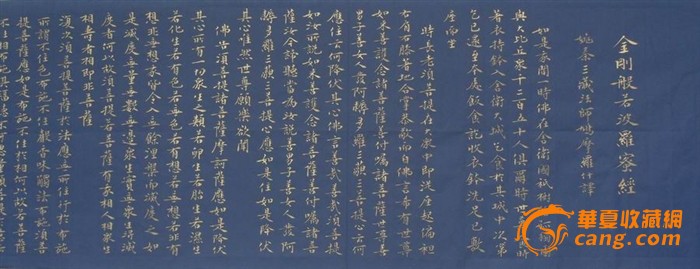 金剛般若波羅蜜經
姚秦三藏法師鳩摩羅什譯
如是我聞一時佛在舍衛國祇樹
與大比丘眾千二百五十人俱爾時世尊時
著衣持鉢入舍衛大城乞食於其城中次第
乞已還至本處飯食訖收衣鉢洗足已敷
座而坐
時長老須菩提在大眾中即從座起偏袒
右肩右膝著地合掌恭敬而白佛言希有世尊
如來善護念諸菩薩善付囑諸菩薩世尊善
男子善女人發阿耨多羅三藐三菩提心云何
應住云何降伏其心佛言善哉善哉須菩提
如汝所說如來善護念諸菩薩善付囑諸菩
薩汝今諦聽當為汝說善男子善女人發阿
耨多羅三藐三菩提心應如是住如是降伏
其心唯然世尊願樂欲聞
佛告須菩提諸菩薩摩訶薩應如是降伏
其心所有一切眾生之類若卵生若胎生若濕生
若化生若有色若無色若有想若無想若非有
想非無想我皆令入無餘涅槃而滅度之如
是滅度無量無數無邊眾生實無眾生得滅
度者何以故須菩提若菩薩有我相人相眾生
相壽者相即非菩薩
復次須菩提菩薩於法應無所住行於布施
所謂不住色布施不住聲香味觸法布施須
菩提菩薩應如是布施不住於相何以故若菩薩
不住相布施
華夏收藏網
cang.com